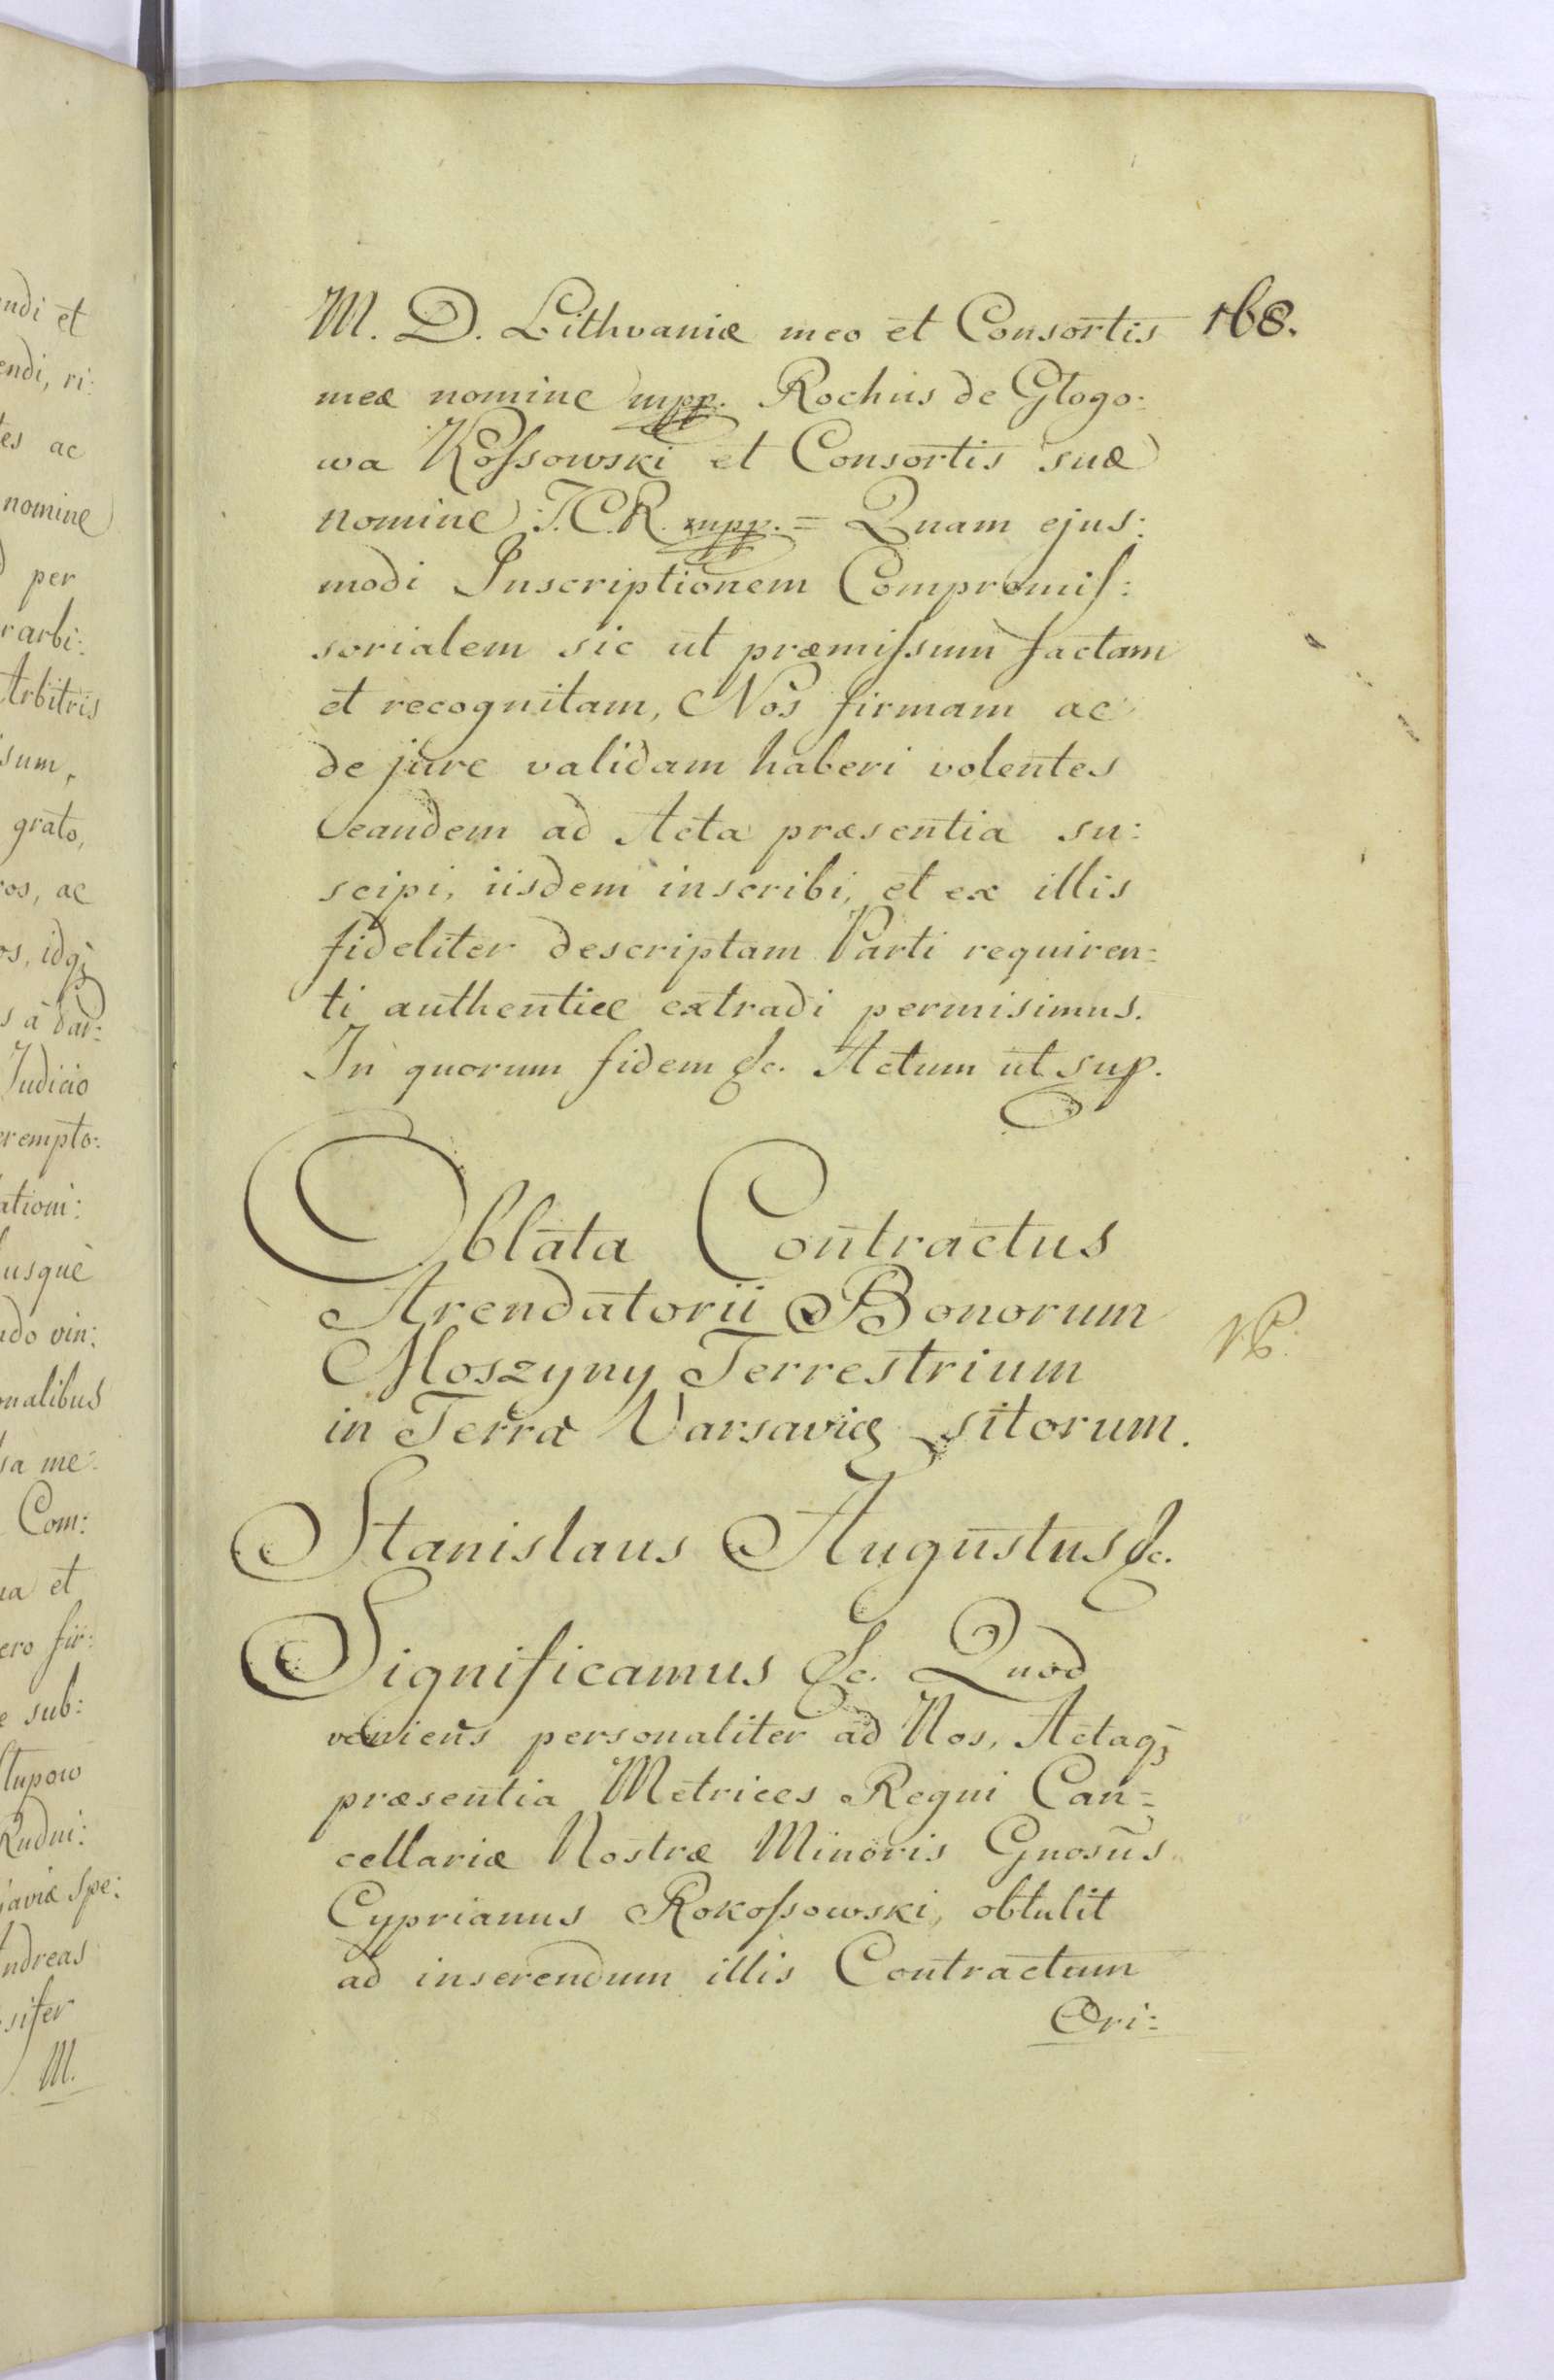 168.
M. D. Lithvaniæ meo et Consortis
meæ nomine mpp. Rochus de Głogo:
wa Koſsowski et Consortis suæ
nomine J.C.R. mpp. = Quam ejus:
modi Inscriptionem Compromiſ:
sorialem sic ut præmiſsum factam
et recognitam, Nos firmam ac
de jure validam haberi volentes
eandem ad Acta præsentia su:
scipi, iisdem inscribi, et ex illis
fideliter descriptam Parti requiren=
ti authentice extradi permisimus.
In quorum fidem &c. Actum ut sup.
Oblata Contractus
Arendatorii Bonorum
Moszyny Terrestrium
in Terra Varsaviæ sitorum.
Stanislaus Augustus &c.
Significamus &c. Quod
veniens personaliter ad Nos, Actaqꝫ
præsentia Metrices Regni Can=
cellariæ Nostræ Minoris Gnosus
Cyprianus Rokoſsowski, obtulit
ad inserendum illis Contractum
Ori:
ndi et
endi, ri:
tes ac
nomine
per
rarbi:
Arbitris
sum,
grato,
ros, ac
os, idqꝫ
Judicio
rempto:
ationi:
usque
do vin:
nalibus
sa me:
Com:
na et
ero fir:
e sub:
tupow
Rudni:
aviæ Spe:
ndreas
sifer
M.